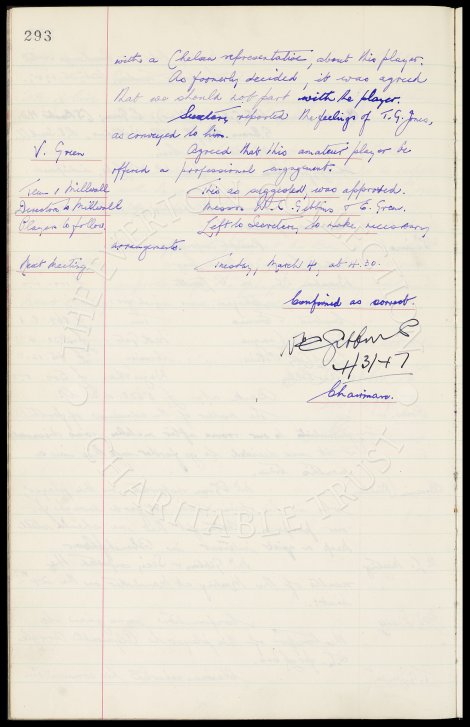 293
with a Chelsea representative, about this player.
As formerly decided, it was agreed
that we should not part with the player.
Secretary reported the feelings of T.G. Jones,
as conveyed to him.
V. Green Agreed that this amateur player be
offered a professional engagement.
Team v Millwall This as suggested, was approved.
Directors to Millwall Messrs W.C. Gibbins & E. Green.
Players to follow. Left to Secretary to make, necessary
arrangements.
Next Meeting Tuesday, March 4, at 4.30.
Confirmed as correct.
W C Gibbins
4/3/47
Chairman.
THE EVERTON COLLECTION
CHARITABLE TRUST